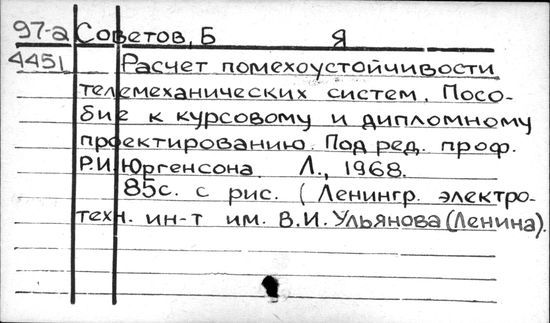 97-а Советов, Б Я
4451 Расчет помехоустойчивости
телемеханических систем. Посо-
бие к курсовому и дипломному
проектированию. Под ред. проф.
Р.И. Юргенсона. Л., 1968.
85с. с рис. (Ленингр. электро-
техн. ин-т им. В.И. Ульянова (Ленина).